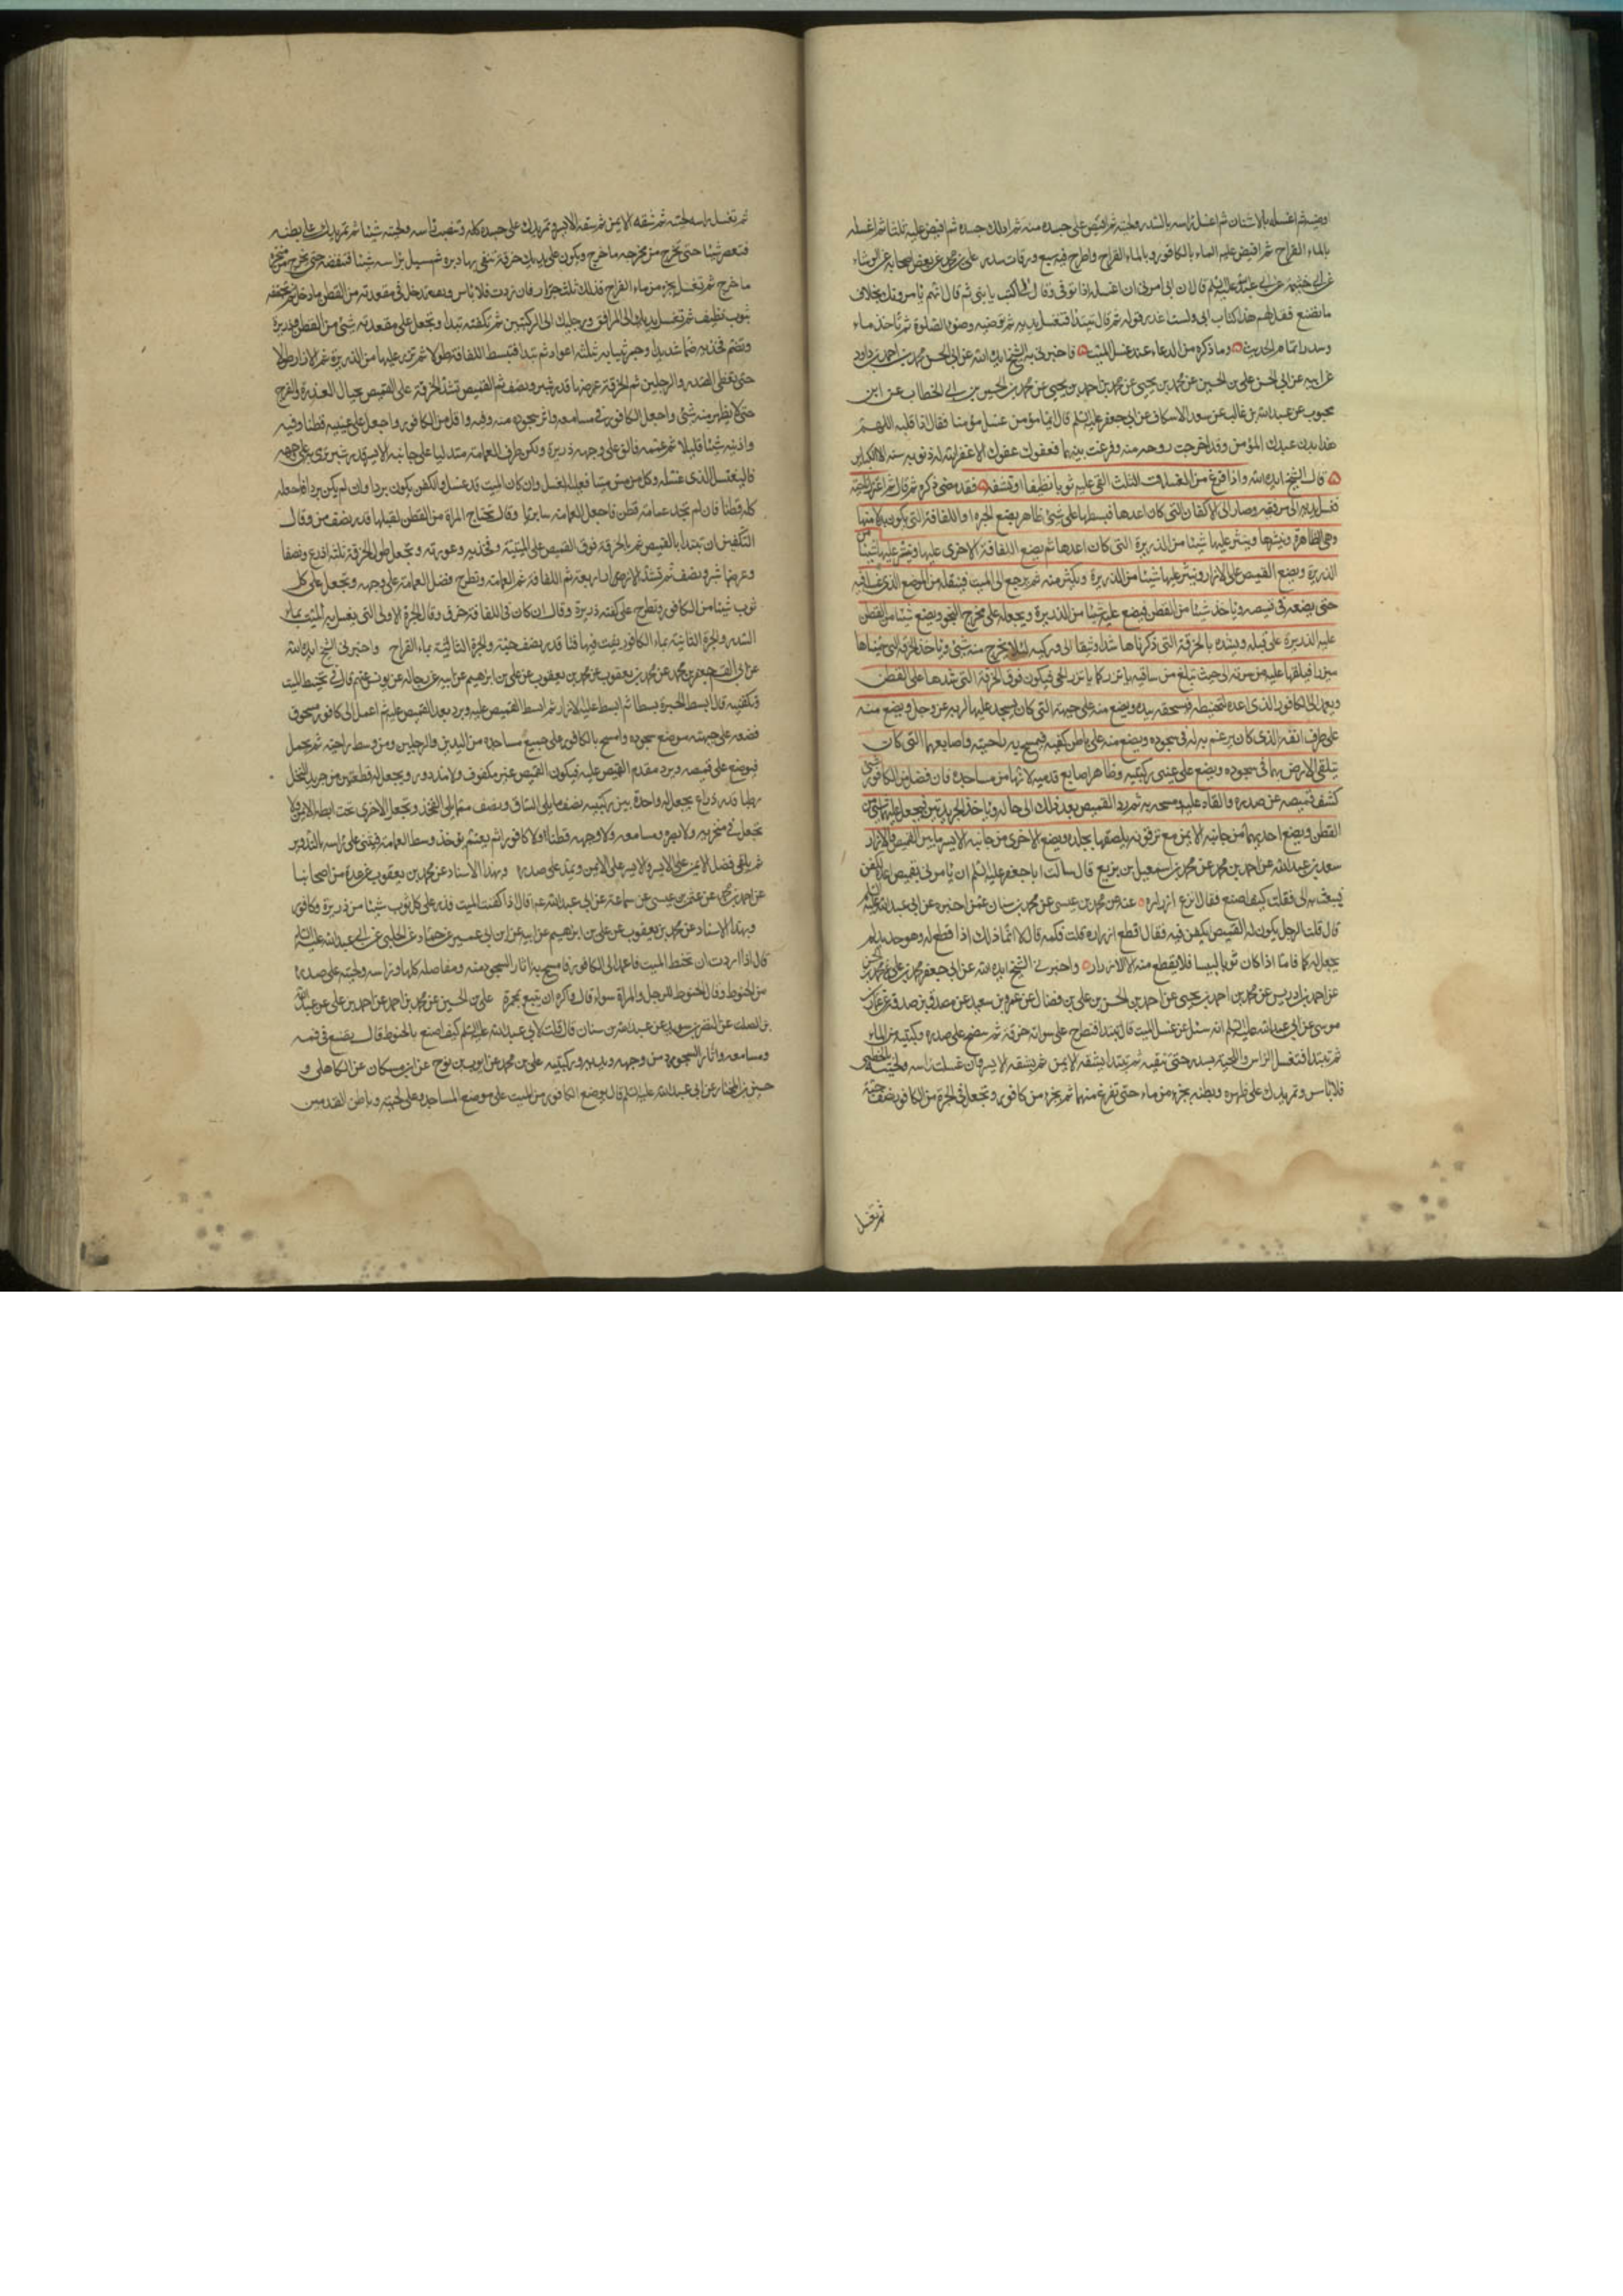 وضيه ثم اغسله بالاشنان ثم اغسل راسه بالسدر ولحيته ثم افيض على جسده منه ثم ادلك جسده ثم افيض عليه ثلثا ثم اغسله
بالماء القراح ثم افيض عليه الماء بالكافور وبالماء القراح واطرح فيه سبع ورقات سدر علي بن محمد عن بعض اصحابه عن الوشاء
عن ابي خيثمة عن ابي عبد الله عليه السلم قال ان ابي امرني ان اغسله اذا توفى وقال لي اكتب يا بني ثم قال انهم يأمرونك بخلاف
ما تصنع فقل لهم هذا كتاب ابي ولست اعدو قوله ثم قال تبتدا فتغسل يديه ثم توضيه وضوء الصلوة ثم تأخذ ماء
وسدرا تمام الحديث وما ذكره من الدعاء عند غسل الميت فاخبرني به الشيخ ايده الله عن ابي الحسن محمد بن احمد بن داود
عن ابيه عن ابي الحسن علي بن الحسين عن محمد بن يحيى عن محمد بن احمد بن يحيى عن محمد بن الحسين بن ابي الخطاب عن ابن
محبوب عن عبد الله بن غالب عن سعد الاسكاف عن ابي جعفر عليه السلم قال ايما مؤمن غسل مؤمنا فقال اذا قلبه اللهم
هذا بدن عبدك المؤمن وقد اخرجت روحه منه وفرقت بينهما فعفوك عفوك الا غفر الله له ذنوب سنة الا الكباير
قال الشيخ ايده الله واذا فرغ من الغسلات الثلث القى عليه ثوبا نظيفا اونشفه فقد مضى ذكره ثم قال ثم اعتزل ناحية
فغسل يديه الى مرفقيه وصار الى الاكفان التي كان اعدها فبسطها على شئ ظاهر يضع الحبرة او اللفافة التي يكون بدلا منها
وهي الظاهرة وينشرها وينثر عليها شيئا من الذريرة التي كان اعدها ثم يضع اللفافة الاخرى عليها وينثر عليها شيئا من
الذريرة ويضع القميص على الازار وينثر عليها شيئا من الذريرة ويكثر منه ثم يرجع الى الميت فينقله من الموضع الذي غسله فيه
حتى يضعه في قميصه وياخذ شيئا من القطن فيضع عليه شيئا من الذريرة ويجعله على مخرج النجو ويضع شيئا من القطن
عليه الذريرة على قبله ويشده بالخرقة التي ذكرناها شدا وثيقا الى وركيه لئلا يخرج منه شئ وياخذ الخرقة التي سميناها
ميزرا فيلفها عليه من سرته الى حيث تبلغ من ساقيه ياتزر كما ياتزر الحي فيكون فوق الخرقة التي شدها على القطن
ويعمد الى الكافور الذي اعده لتحنيطه فيسحقه بيده ويضع منه على جبهته التي كان يسجد عليها لربه عز وجل ويضع منه
على طرف انفه الذي كان يرغم به له في سجوده ويضع منه على باطن كفيه فيمسح به راحتيه واصابعهما التي كان
يتلقى الارض بهما في سجوده ويضع على عيني ركبتيه وظاهر اصابع قدميه لانها من مساجده فان فضل من الكافور شئ
كشف قميصه عن صدره والقاه عليه ومسحه به ثم يرد القميص بعد ذلك الى حاله وياخذ الجريدتين فيجعل عليهما شيئا من
القطن ويضع احديهما من جانبه الايمن مع ترقوته يلصقها بجلده ويضع الاخرى من جانبه الايسر ما بين القميص والازار
سعد بن عبد الله عن احمد بن محمد عن محمد بن اسمعيل بن بزيع قال سالت ابا جعفر عليه السلم ان يأمر لي بقميص اعده لكفني
فبعث به الي فقلت كيف اصنع فقال انزع ازراره عنه عن محمد بن عيسى عن محمد بن سنان عمن اخبره عن ابي عبد الله عليه السلم
قال قلت الرجل يكون له القميص ايكفن فيه فقال اقطع ازراره قلت فكمه قال لا انما ذلك اذا قطع له وهو جديد لم
يجعل له كما فاما اذا كان ثوبا لبيسا فلا يقطع منه الا الازرار واخبرني الشيخ ايده الله عن ابي جعفر محمد بن علي عن محمد بن الحسن
عن احمد بن ادريس عن محمد بن احمد بن يحيى عن احمد بن الحسن بن علي بن فضال عن عمرو بن سعيد عن مصدق بن صدقة عن عمار بن
موسى عن ابي عبد الله عليه السلم انه سئل عن غسل الميت قال تبتدا فتطرح على سوأته خرقة ثم تنضح على صدره وركبتيه من الماء
ثم تبتدا فتغسل الراس واللحية بسدر حتى تنقيه ثم تبتدا بشقه الايمن ثم بشقه الايسر فان غسلت راسه ولحيته بالخطمي
فلا بأس وتمر يدك على ظهره وبطنه بجرة من ماء حتى تفرغ منهما ثم بجرة من كافور وتجعل في الجرة من الكافور نصف حبة
ثم تغسل
ثم تغسل راسه ولحيته ثم شقه الايمن ثم شقه الايسر وتمر يدك على جسده كله وتنصب راسه ولحيته شيئا ثم تمر يدك على بطنه
فتعصر شيئا حتى يخرج من مخرجه ما خرج ويكون على يديك خرقة تنقى بها دبره ثم تميل براسه شيئا فتنفضه حتى يخرج من منخره
ما خرج ثم تغسل بجرة من ماء القراح فذلك ثلث جرار فان زدت فلا بأس وتدخل في مقعدته من القطن ما دخل ثم تجففه
بثوب نظيف ثم تغسل يديك الى المرافق ورجليك الى الركبتين ثم تكفنه تبدا وتجعل على مقعدته شئ من القطن وذريرة
وتضم فخذيه ضما شديدا وجمر ثيابه بثلثة اعواد ثم تبدا فتبسط اللفافة طولا ثم تذر عليها من الذريرة ثم الازار طولا
حتى تغطي الصدر والرجلين ثم الخرقة عرضها قدر شبر ونصف ثم القميص تشد الخرقة على القميص بحيال العذرة والفرج
حتى لا يظهر منه شئ واجعل الكافور في مسامعه واثر سجوده منه وفيه واقل من الكافور واجعل على عينيه قطنا وفيه
واذنيه شيئا قليلا ثم عممه فالق على وجهه ذريرة وليكن طرف العمامة متدليا على جانبه الايسر قدر شبر ترمى به على وجهه
فاليغتسل الذي غسله وكل من مس ميتا فعليه الغسل وان كان الميت قد غسل والكفن يكون بردا وان لم يكن بردا فاجعله
كله قطنا فان لم تجد عمامة قطن فاجعل العمامة سابريا وقال تحتاج المراة من القطن لقبلها قدر نصف من وقال
التكفين ان تبتدا بالقميص ثم بالخرقة فوق القميص على اليتيه وفخذيه وعورته وتجعل طول الخرقة ثلثة اذرع ونصفا
وعرضها شبر ونصف ثم تشد الازار اربعة ثم اللفافة ثم العمامة وتطرح فضل العمامة على وجهه وتجعل على كل
ثوب شيئا من الكافور وتطرح على كفنه ذريرة وقال ان كان في اللفافة خرق وقال الجرة الاولى التي يغسل بها الميت بماء
السدر والجرة الثانية بماء الكافور يفت فيها فتا قدر نصف حبة والجرة الثالثة بماء القراح واخبرني الشيخ ايده الله
عن ابي القسم جعفر بن محمد عن محمد بن يعقوب عن علي بن ابرهيم عن ابيه عن رجاله عن يونس عنهم قال في تحنيط الميت
وتكفينه قال ابسط الحبرة بسطا ثم ابسط عليها الازار ثم ابسط القميص عليه وترد مقدم القميص عليه ثم اعمد الى كافور مسحوق
فضعه على جبهته موضع سجوده وامسح بالكافور على جميع مساجده من اليدين والرجلين ومن وسط راحتيه ثم يحمل
فيوضع على قميصه ويرد مقدم القميص عليه فيكون القميص غير مكفوف ولا مزرور ويجعل له قطعتين من جريد النخل
رطبا قدر ذراع يجعل له واحدة بين ركبتيه نصف مما يلي الساق ونصف مما يلي الفخذ وتجعل الاخرى تحت ابطه الايمن ولا
تجعل في منخريه ولا بصره ومسامعه ولا وجهه قطنا ولا كافورا ثم يعمم يؤخذ وسط العمامة فيثنى على راسه بالتدوير
ثم يلقى فضل الايمن على الايسر والايسر على الايمن ويمد على صدره وبهذا الاسناد عن محمد بن يعقوب عن عدة من اصحابنا
عن احمد بن محمد عن عثمن بن عيسى عن سماعة عن ابي عبد الله عم قال اذا كفنت الميت فذر على كل ثوب شيئا من ذريرة وكافور
وبهذا الاسناد عن محمد بن يعقوب عن علي بن ابرهيم عن ابيه عن ابن ابي عمير عن حماد عن الحلبي عن ابي عبد الله عليه السلم
قال اذا اردت ان تحنط الميت فاعمد الى الكافور فامسح به اثار السجود منه ومفاصله كلها وراسه ولحيته على صدره
من الحنوط وقال الحنوط للرجل والمراة سواء قال واكره ان يتبع بمجمرة علي بن الحسين عن محمد بن احمد عن احمد بن علي عن عبد الله
بن الصلت عن النضر بن سويد عن عبد الله بن سنان قال قلت لابي عبد الله عليه السلم كيف اصنع بالحنوط قال يضع في فمه
ومسامعه واثار السجود من وجهه ويديه وركبتيه علي بن محمد عن ايوب بن نوح عن ابن مسكان عن الكاهلي و
حسين بن المختار عن ابي عبد الله عليه السلم قال يوضع الكافور من الميت على موضع المساجد وعلى اللبة وباطن القدمين